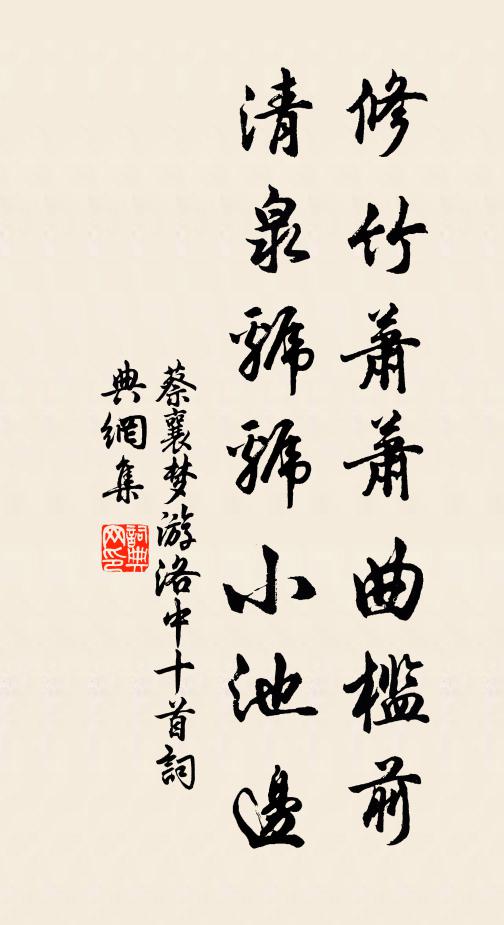 修竹萧萧曲槛前
清泉虢虢小池邊
蔡襄梦游洛中十首詞
典網集
詞典網印